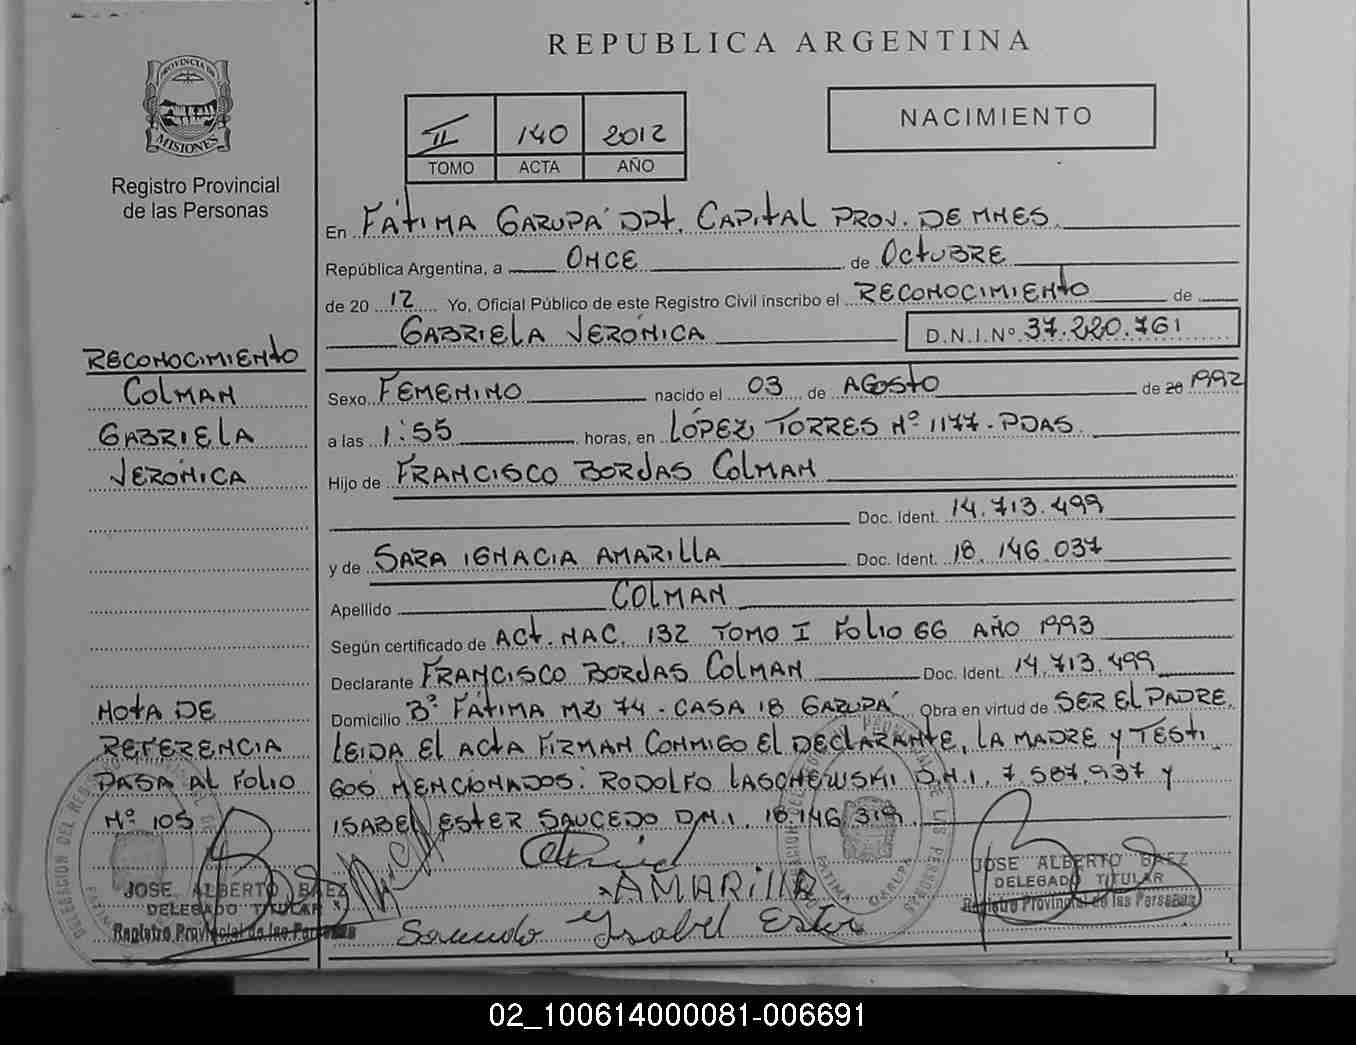 REPUBLICA ARGENTINA
PROVINCIA DE
MISIONES
Registro Provincial
de las Personas
II 140 2012
TOMO ACTA AÑO
NACIMIENTO
En FÁTIMA GARUPÁ DPT. CAPITAL PROV. DE MNES.
República Argentina, a ONCE de OCTUBRE
de 20 12 Yo, Oficial Público de este Registro Civil inscribo el RECONOCIMIENTO de
GABRIELA VERÓNICA D.N.I.Nº 37.220.761
RECONOCIMIENTO
COLMAN
GABRIELA
VERÓNICA
Sexo FEMENINO nacido el 03 de AGOSTO de 20 1992
a las 1:55 horas, en LÓPEZ TORRES Nº 1177-PDAS.
Hijo de FRANCISCO BORJAS COLMAN
Doc. Ident. 14.713.499
y de SARA IGNACIA AMARILLA Doc. Ident. 18.146.037
Apellido COLMAN
Según certificado de ACT. NAC. 132 TOMO I FOLIO 66 AÑO 1993
Declarante FRANCISCO BORJAS COLMAN Doc. Ident. 14.713.499
Domicilio Bº FÁTIMA MZ 74 - CASA 18 GARUPÁ Obra en virtud de SER EL PADRE.
LEIDA EL ACTA FIRMAN CONMIGO EL DECLARANTE, LA MADRE Y TESTI
GOS MENCIONADOS: RODOLFO LASCHEWSKI D.N.I. 7.587.937 Y
ISABEL ESTER SAUCEDO D.N.I. 18.146.319
NOTA DE
REFERENCIA
PASA AL FOLIO
Nº 105
AMARILLA
Saucedo Isabel Ester
JOSE ALBERTO BAEZ
DELEGADO TITULAR
Registro Provincial de las Personas
JOSE ALBERTO BAEZ
DELEGADO TITULAR
Registro Provincial de las Personas
02_100614000081-006691